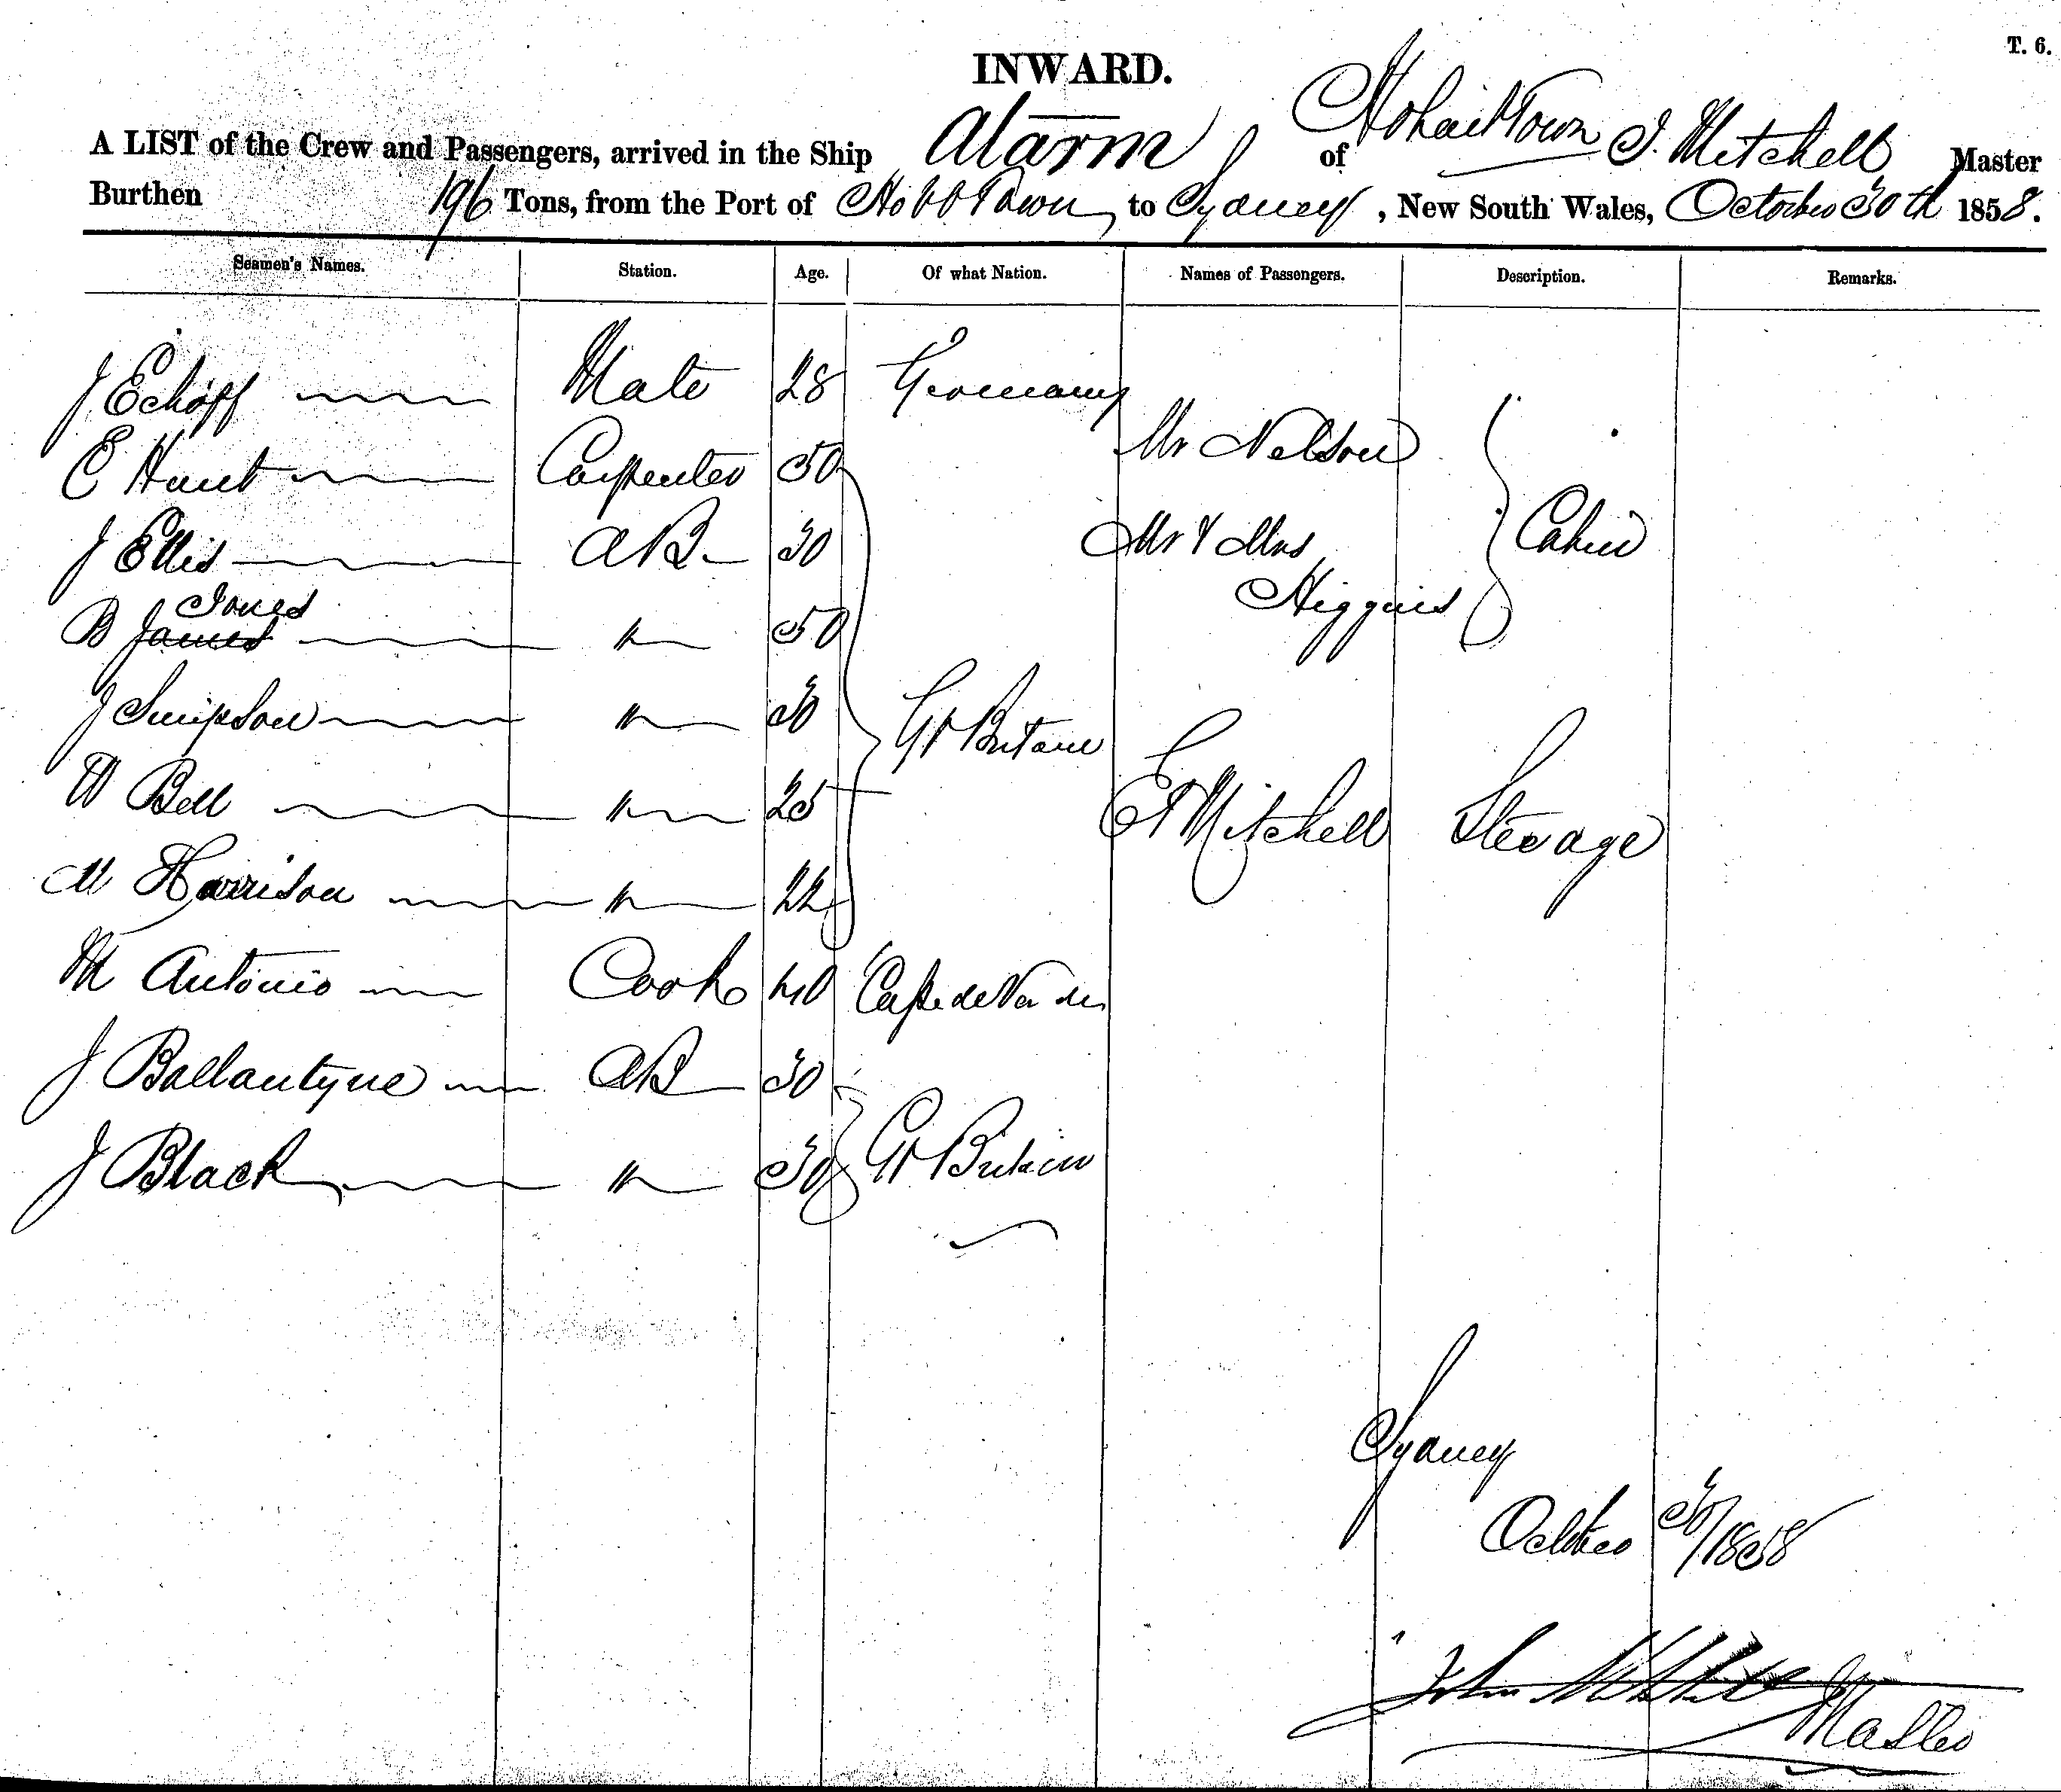 T. 6.
INWARD.
A LIST of the Crew and Passengers, arrived in the Ship Alarm of Hobart Town J. Mitchell Master
Burthen 196 Tons, from the Port of Hobt Town to Sydney, New South Wales, October 30th 1858.
Seamen's Names. Station. Age. Of what Nation. Names of Passengers. Description. Remarks.
J Echoff Mate 28 Germany
Mr Nelson
E Hunt Carpenter 50
J Ellis AB 30 Mr & Mrs Cabin
Jones Higgins
B James " 50
J Simpson " 30 Gt Britain
W Bell " 25 E Mitchell Steerage
M Harrison " 22
M Antonio Cook 40 Cape de Verdes
J Ballantyne AB 30
J Black " 30 Gt Britain
Sydney
October 30/1858
John Mitchell Master